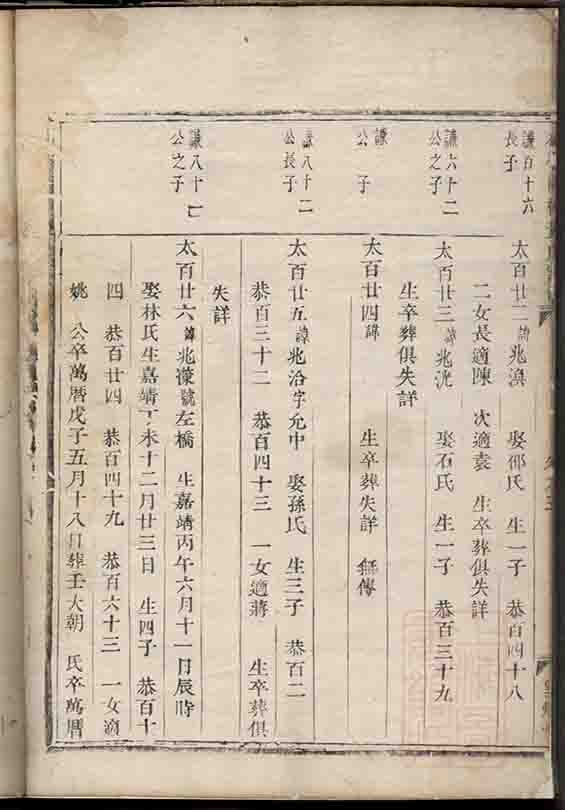 謙百十六
長子
太百廿二諱兆澳 娶邵氏 生一子 恭百四十八
二女長適陳 次適袁 生卒葬俱失詳
謙六十二
公之子
太百廿三諱兆沈 娶石氏 生一子 恭百三十九
生卒葬俱失詳
謙
公 子
太百廿四諱 生卒葬失詳 無傳
謙八十二
公長子
太百廿五諱兆洽字允中 娶孫氏 生三子 恭百二
恭百三十二 恭百四十三 一女適蔣 生卒葬俱
失詳
謙八十七
公之子
太百廿六諱兆濛號左橋 生嘉靖丙午六月十一日辰時
娶林氏生嘉靖丁未十二月廿三日 生四子 恭百十
四 恭百廿四 恭百四十九 恭百六十三 一女適
姚 公卒萬曆戊子五月十八日葬王大朝 氏卒萬曆